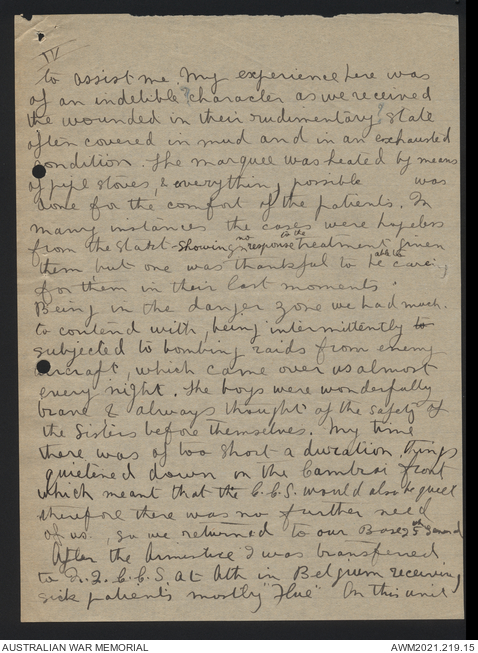 IV
to assist me. My experience here was
of an indelible character as we received
the wounded in their rudimentary state
often covered in mud and in an exhausted
condition. The marquee was heated by means
of pipe stoves, & everything possible was
done for the comfort of the patients. In
many instances the cases were hopeless
from the start showing no response to the treatment given
them but one was thankful to be able to care
for them in their last moments.
Being in the danger zone we had much
to contend with, being intermittently to
subjected to bombing raids from enemy
aircraft, which came over us almost
every night. The boys were wonderfully
brave & always thought of the safety of
the Sisters before themselves. My time
there was of too short a duration. Things
quietened down on the Cambrai front
which meant that the C.C.S. would also be quiet
therefore there was no further need
of us, so we returned to our Base, General
After the Armistice I was transferred
to C.C.S. at Ath in Belgium receiving
sick patients mostly "Flue" On this unit
AUSTRALIAN WAR MEMORIAL
AWM2021.219.15